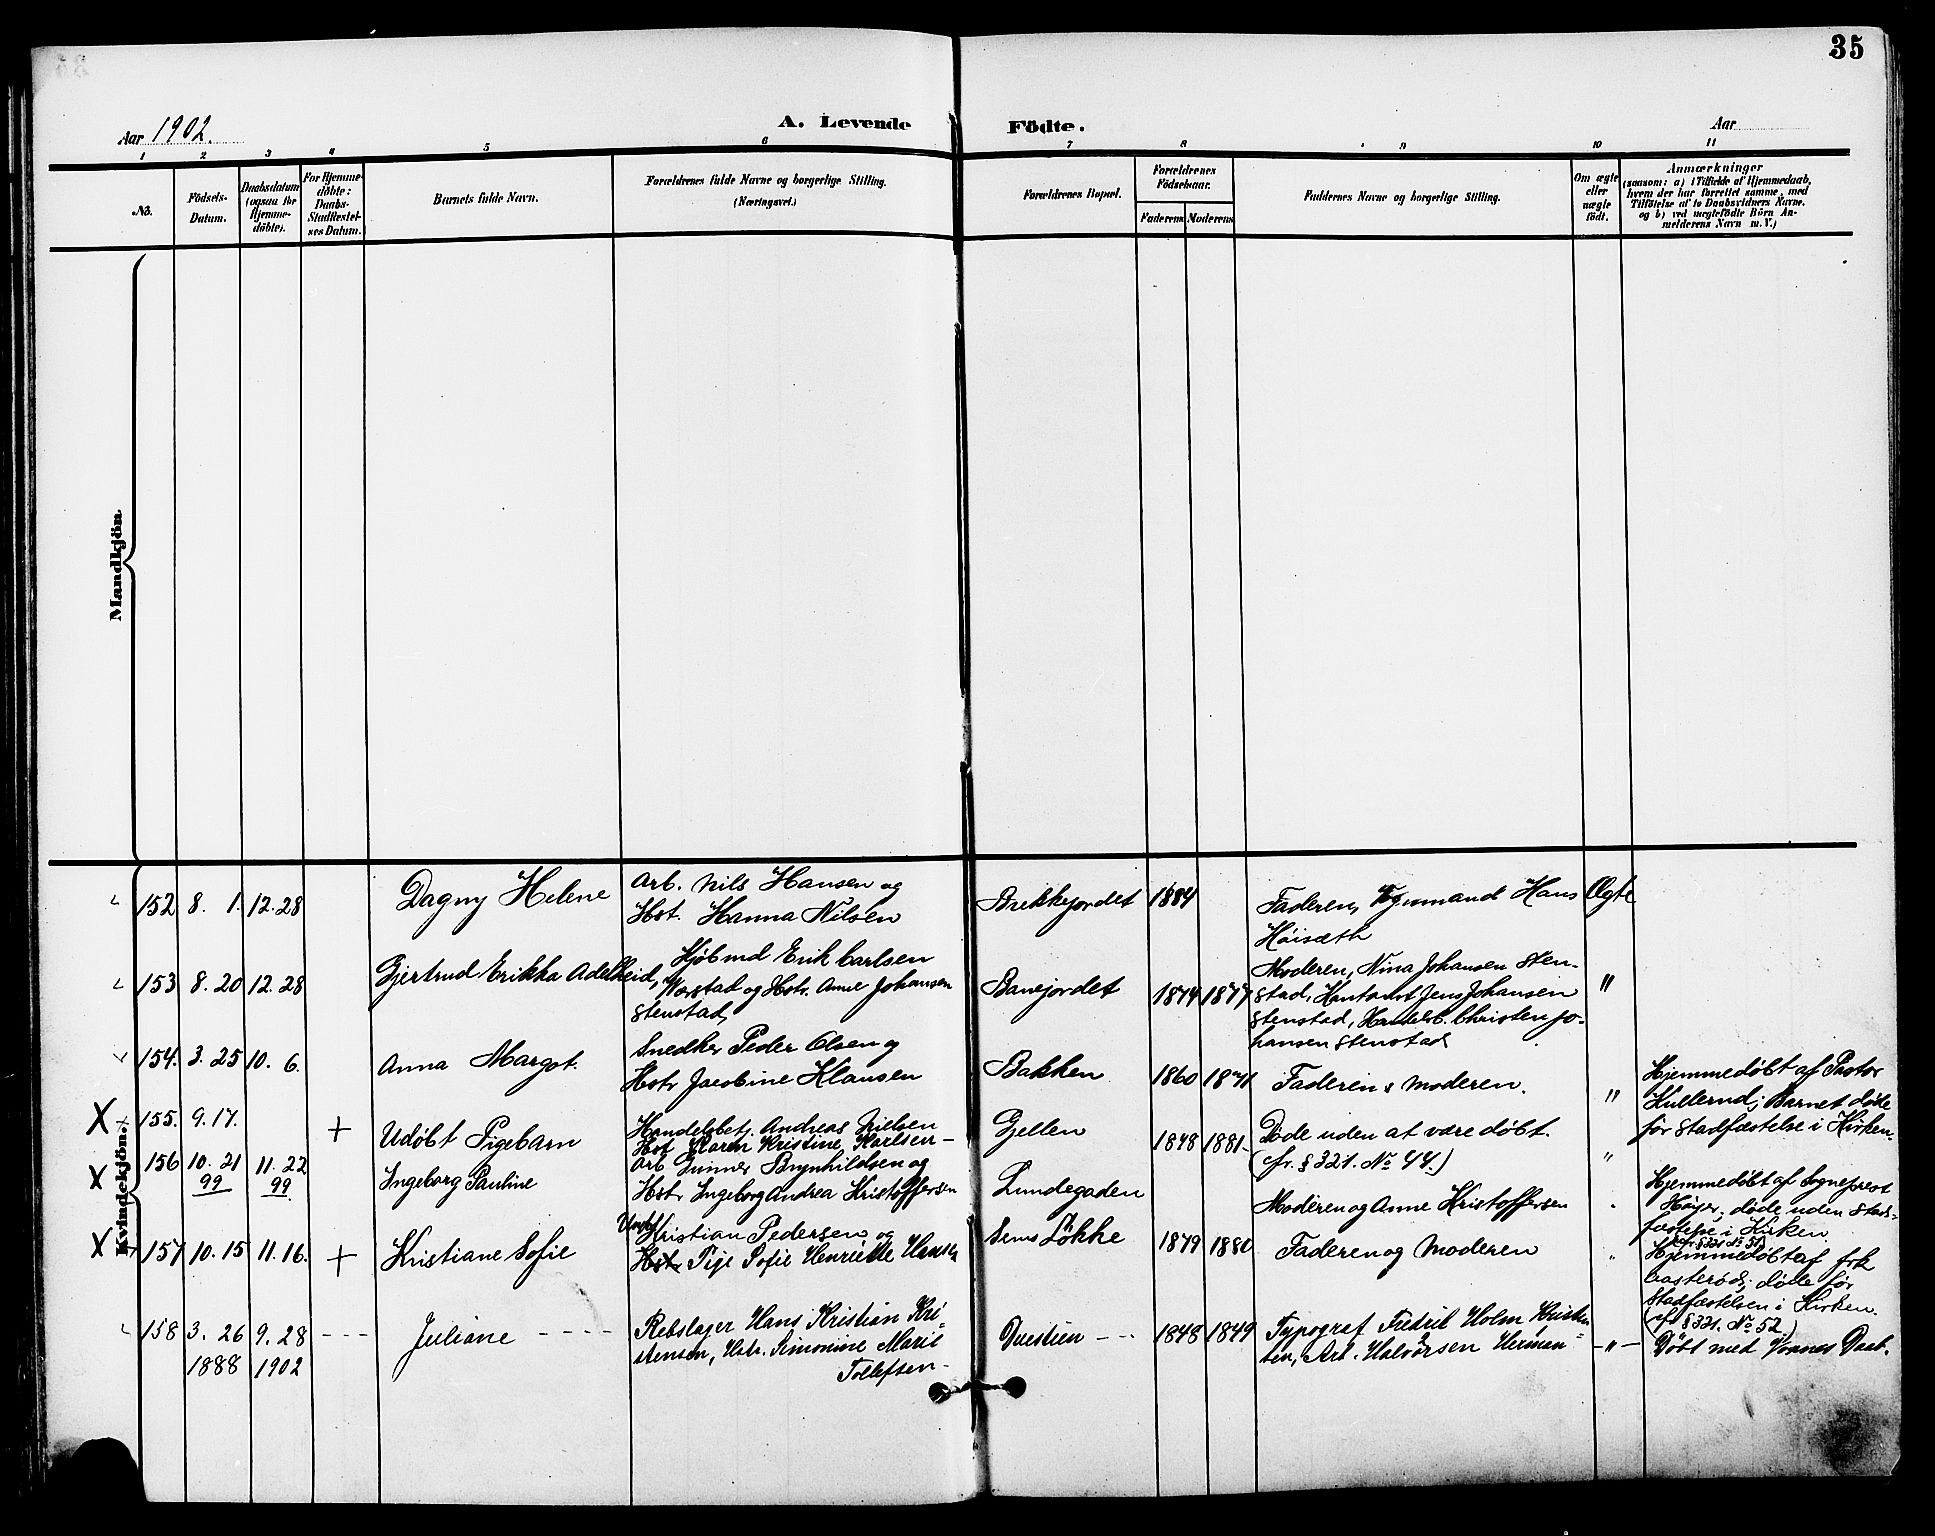 35
Aar 1902.
A. Levende Födte.
Aar
1 2 3 4 5 6 7 8 9 10 11
No.
Födsels-
Datum.
Daabsdatum
(ogsaa for
Hjemme-
döbte).
For Hjemme-
döbte:
Daabs-
Stadfæstel-
ses Datum.
Barnets fulde Navn.
Forældrenes fulde Navne og borgerlige Stilling.
(Næringsvei.)
Forældrenes Bopæl.
Forældrenes
Födselsaar.
Faderens Moderens
Faddernes Navne og borgerlige Stilling.
Om ægte
eller
uægte
födt.
Anmærkninger
(saasom: a) i Tilfælde af Hjemmedaab,
hvem der har forrettet samme, med
Tilföielse af to Daabsvidners Navne.
og b) ved uægtefödte Börn An-
melderens Navn m. V.)
Mandkjön
Kvindekjön.
152 8. 1. 12. 28 Dagny Helene
Arb. Nils Hansen og
Hst. Hanna Nilsen
Brekkejordet 1884
Faderen, Hans
Høisæth
Ægte
153 8. 20 12. 28 Gjertrud Erikka Adelheid,
Kjøbmd Erik Carlsen
Warstad og Hstr. Anne Johansen
Stenstad,
Banejordet 1874 1877
Moderen, Nina Johansen Sten-
stad, Jens Johansen
Stenstad, Handelsb. Christen Jo-
hansen Stenstad
"
154. 3. 25 10. 6. Anna Margot.
Snedker Peder Olsen og
Hstr Jacobine Klausen
Bakken 1860 1871
Faderen & Moderen.
"
Hjemmedøbt af Pastor
Kullerud; Barnet døde
før Stadfæstelse i Kirken.
X 155. 9. 17. + Udøbt Pigebarn
Handelsbetj. Andreas Nielsen
Hst Karen Kristine Karlsen -
Gjellen 1848 1881-
Døde uden at være døbt.
(cfr. § 321. No 44.)
"
X 156 10. 21 11. 22
99 99
Ingeborg Pauline
Arb. Gunner Brynhildsen og
Hstr Ingeborg Andrea Kristoffersen
Lundegaden
Moderen og Anne Kristoffersen
"
Hjemmedøbt af Sogneprest
Høyer, døde uden Stad-
fæstelse i Kirken
cfr. § 321 No 51
X 157 10. 15 11. 16. + Kristiane Sofie
Kristian Pedersen og
Hstr Pige Sofie Henriette Hansen
Løkke 1879 1880
Faderen og Moderen
"
Hjemmedøbt af frk
døde før
Stadfæstelsen i Kirken.
(cfr § 321. No 52.)
158 3. 26 9. 28 - - - Juliane - - - -
1888 1902
Rebslager Hans Kristian Kri-
stensen, Hstr. Simonine Marie
Tollefsen -
Duestien - - - 1848 1849
Typograf Fredrik Holm Kristen-
sen, Arb. Halvorsen Herman-
- " -
Døbt med Voxnes Daab.